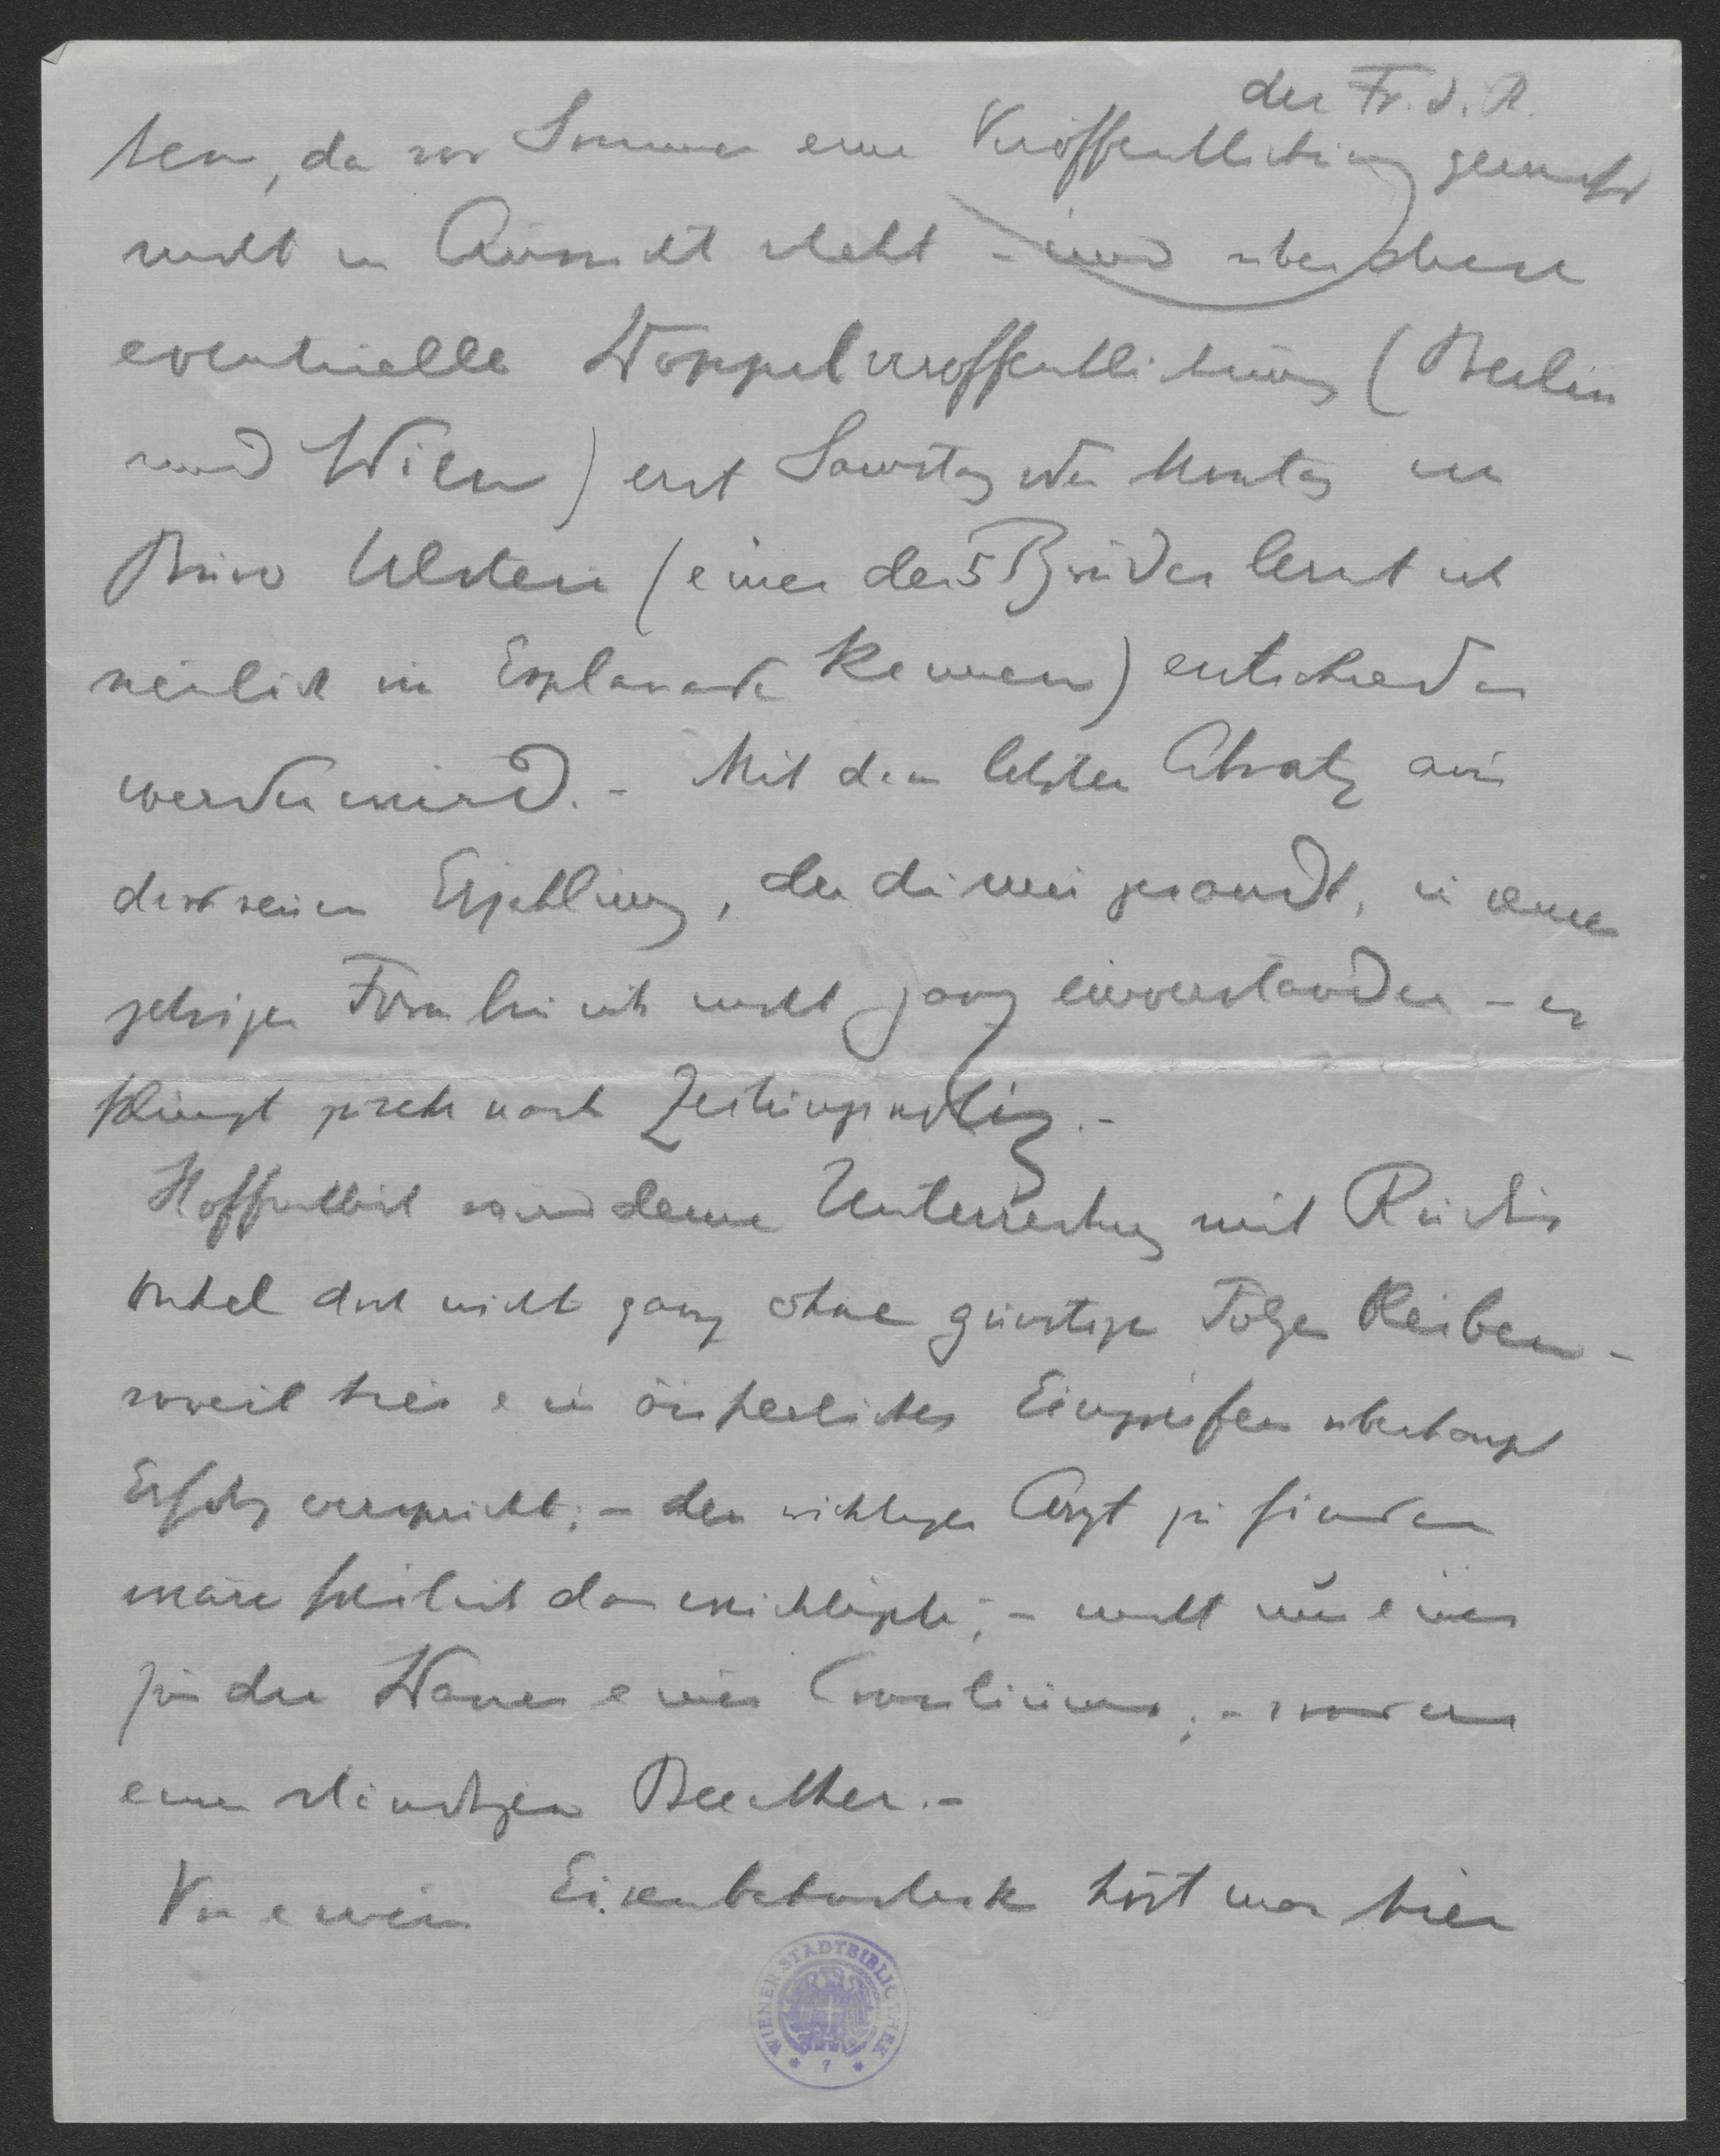 der Fr. d. R.
ten, da vor Sommer eine Veröffentlichung keinesfalls
nicht in Aussicht steht – und über diese
eventuelle Doppelveröffentlichung (Berlin
und Wien) erst Samstag oder Montag im
Büro Ullstein (einen der 5 Brüder lernt ich
neulich im Esplanade kennen) entschieden
werden wird. – Mit dem letzten Absatz aus
der Erzählung, den du mir gesandt, in seiner
jetzigen Form bin ich nicht ganz einverstanden – er
klingt zu sehr nach Zeitungsnotiz. –
Hoffentlich wird deine Unterredung mit
Onkel doch nicht ganz ohne günstige Folgen bleiben –
soweit hier ein äußerliches Eingreifen überhaupt
Erfolg verspricht; – den richtigen Arzt zu finden
wäre freilich das wichtigste; – nicht nur einen
für die Dauer eines Consiliums; – sondern
einen ständigen Berather. –
Von einem Eisenbahnstreik hört man hier
WIENER STADTBIBLIOTHEK
* 7 *